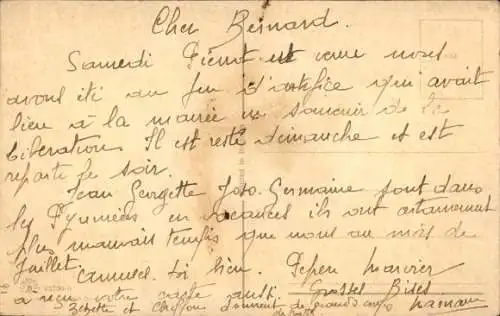 Cher Bernard.
Samedi Pierrot est venu nous
avons été au feu d'artifice qui avait
lieu à la mairie en souvenir de la
libération Il est resté dimanche et est
reparti le soir.
Jean Georgette Jojo Germaine sont dans
les Pyrénées en vacances ils ont certainement
plus mauvais temps que nous au mois de
Juillet. amuses toi bien. Pépère
a reçu votre carte aussi. Grosses Bises
Zezette et donnent de grands
maman